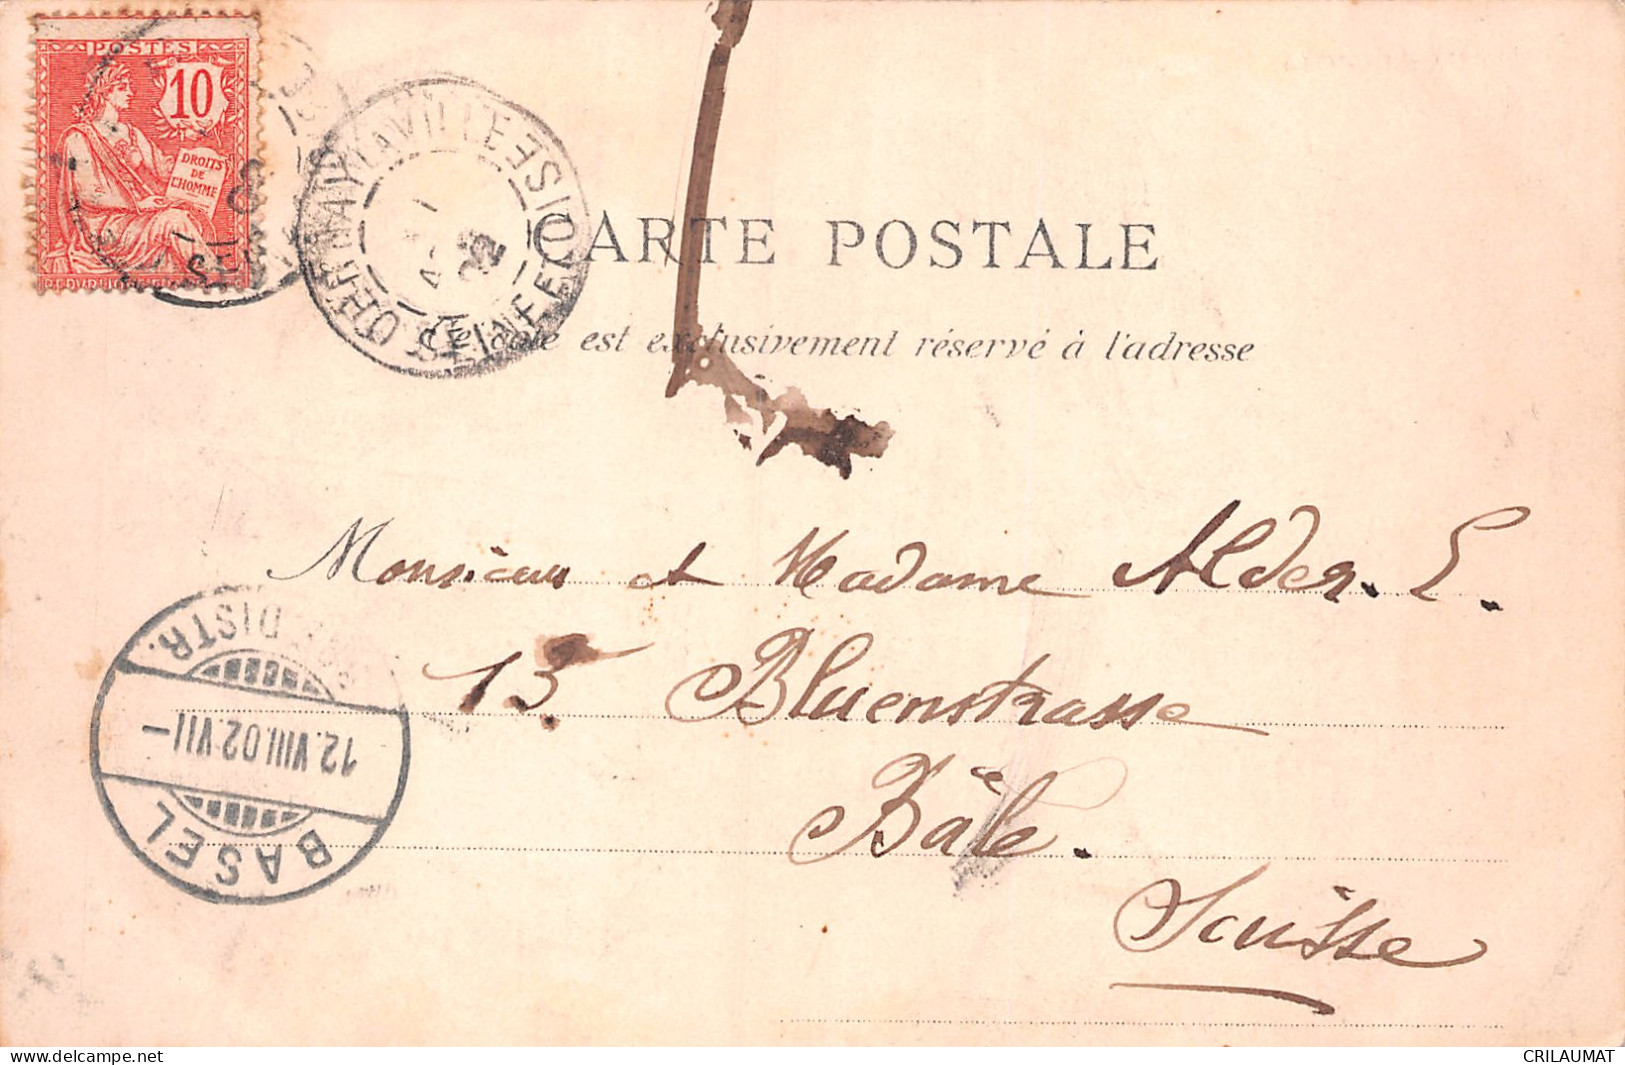 POSTES
10
DROITS
DE
L'HOMME
CARTE POSTALE
Ce côté est exclusivement réservé à l'adresse
Monsieur et Madame Alder. E.
13 Bluenstrasse
Bâle.
Suisse
DISTR.
12.VIII.02.VII–
BASEL
https://www.delcampe.net
CRILAUMAT